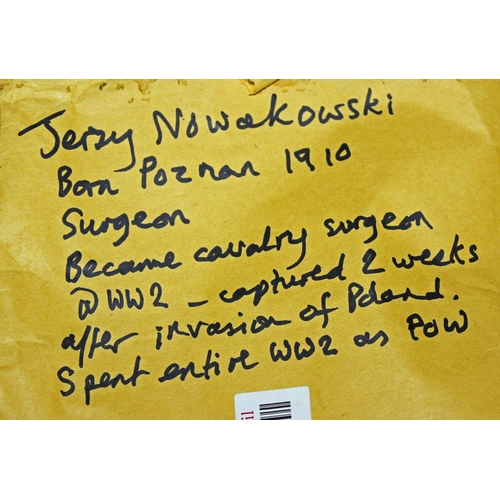 Jerzy Nowakowski
Born Poznan 1910
Surgeon
Became cavalry surgeon
@ WW2 - captured 2 weeks
after invasion of Poland.
Spent entire WW2 as POW